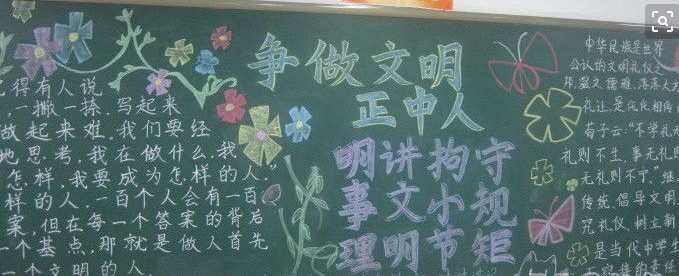 得有人说
一撇一捺,写起来
做起来难,我们要经
地思考,我在做什么,我
怎样,我要成为怎样的人。
样的人,一百个人会有一百
案,但在每一个答案的背后
一个基点,那就是做人首先
一个文明的人,
争做文明
正中人
明事理
讲文明
拘小节
守规矩
中华民族是世界
公认的文明礼仪之
邦,温文儒雅,落落大
礼让,是仪礼相向
荀子云:“不学礼无
礼则不生,事无礼则
无礼则不宁。”继
传统倡导文明
究礼仪,树立新
是当代中学生
的责任